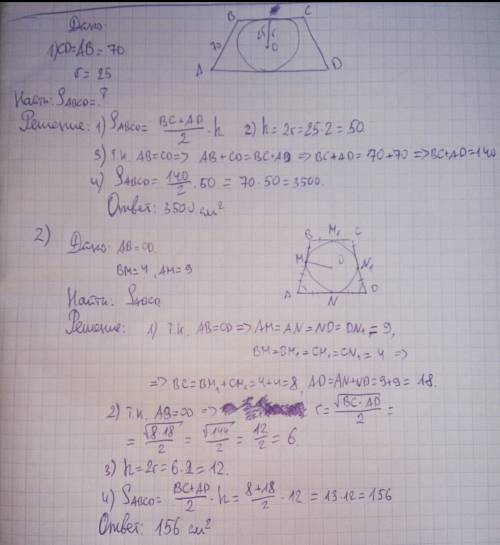 Дано:
1) CD=AB=70
r = 25
Найти: SABCD=?
B C
70 25 r
O
A D
Решение: 1) SABCD= BC+AD/2 · h 2) h=2r=25·2=50
3) т.к. AB=CD=> AB+CD=BC+AD => BC+AD=70+70 =>BC+AD=140
4) SABCD= 140/2 · 50 = 70·50=3500.
Ответ: 3500 см²
2) Дано: AB=CD.
BM=4, AM=9
B M₁ C
M O N₁
A N D
Найти: SABCD
Решение: 1) т.к. AB=CD => AM=AN=ND=DN₁=9,
BM=BM₁=CM₁=CN₁=4 =>
=> BC=BM₁+CM₁=4+4=8, AD=AN+ND=9+9=18.
2) т.к. AB=CD => r= √BC·AD/2 =
= √8·18/2 = √144/2 = 12/2 = 6.
3) h=2r=6·2=12.
4) SABCD= BC+AD/2 · h = 8+18/2 · 12 = 13·12=156
Ответ: 156 см²